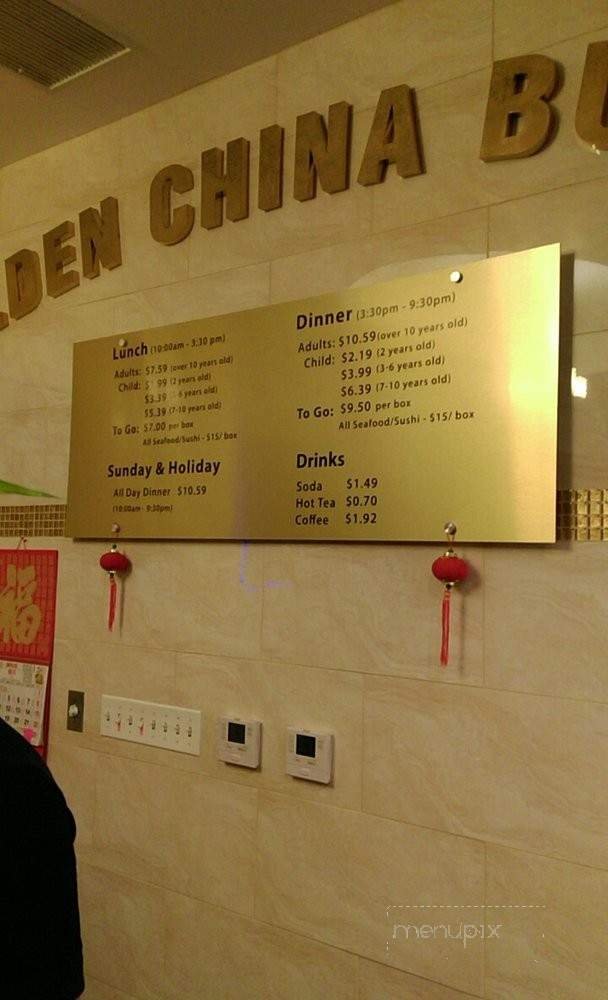 LDEN CHINA BU
Lunch (10:00am - 3:30 pm)
Adults: $7.59 (over 10 years old)
Child: 99 (2 years old)
$3.39 6 years old)
$5.39 (7-10 years old)
To Go: $7.00 per box
All Seafood/Sushi - $15/ box
Sunday & Holiday
All Day Dinner $10.59
(10:00am - 9:30pm)
Dinner (3:30pm - 9:30pm)
Adults: $10.59 (over 10 years old)
Child: $2.19 (2 years old)
$3.99 (3-6 years old)
$6.39 (7-10 years old)
To Go: $9.50 per box
All Seafood/Sushi - $15/ box
Drinks
Soda $1.49
Hot Tea $0.70
Coffee $1.92
福
menupix